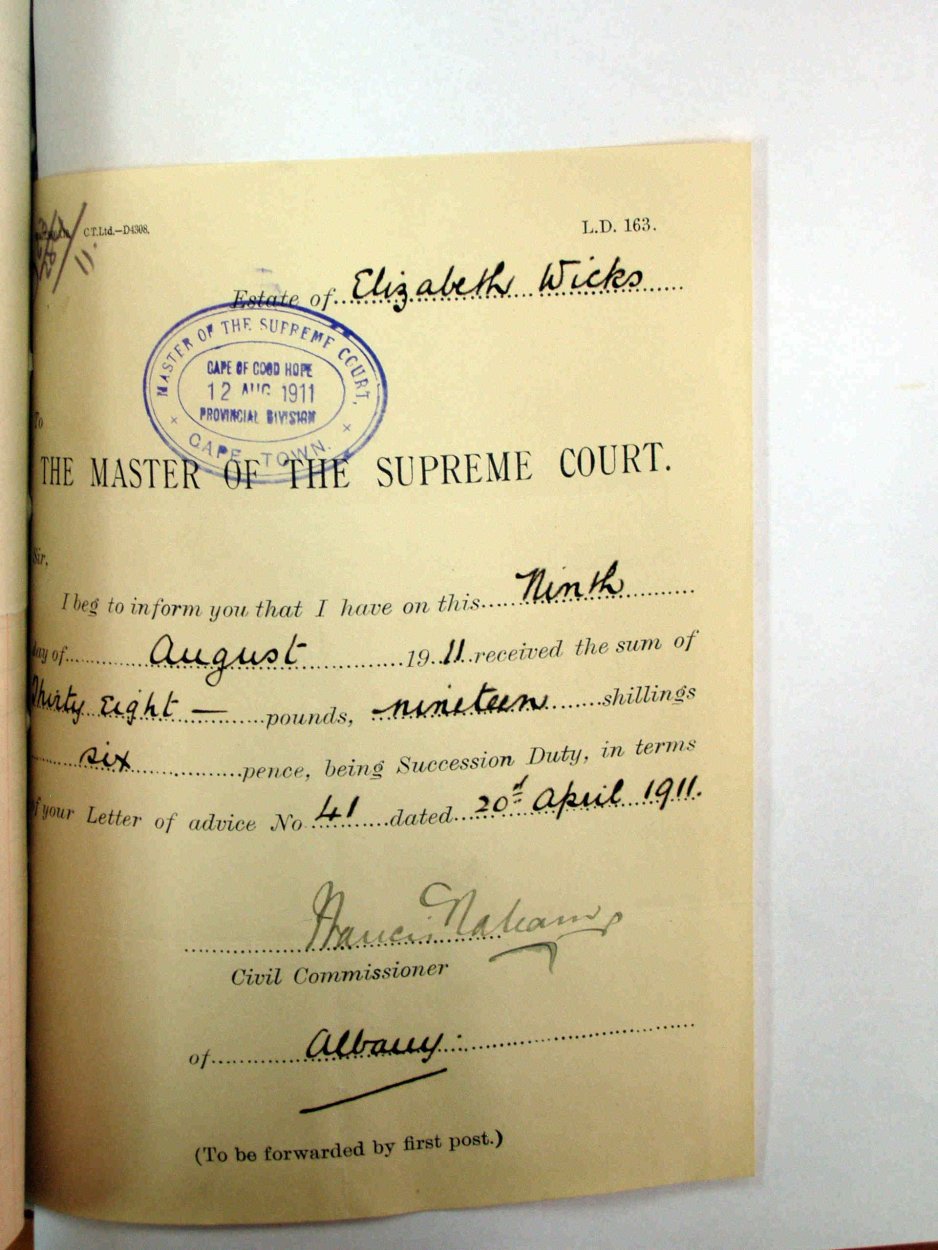 C.T.Ltd.—D4308.
L.D. 163.
Estate of Elizabeth Wicks
MASTER OF THE SUPREME COURT,
CAPE OF GOOD HOPE
12 AUG 1911
PROVINCIAL DIVISION
CAPE TOWN.
To
THE MASTER OF THE SUPREME COURT.
Sir,
I beg to inform you that I have on this Ninth
day of August 19 11 received the sum of
Thirty Eight — pounds, nineteen shillings
six pence, being Succession Duty, in terms
of your Letter of advice No 41 dated 20d April 1911.
Francis
Civil Commissioner
of Albany.
(To be forwarded by first post.)